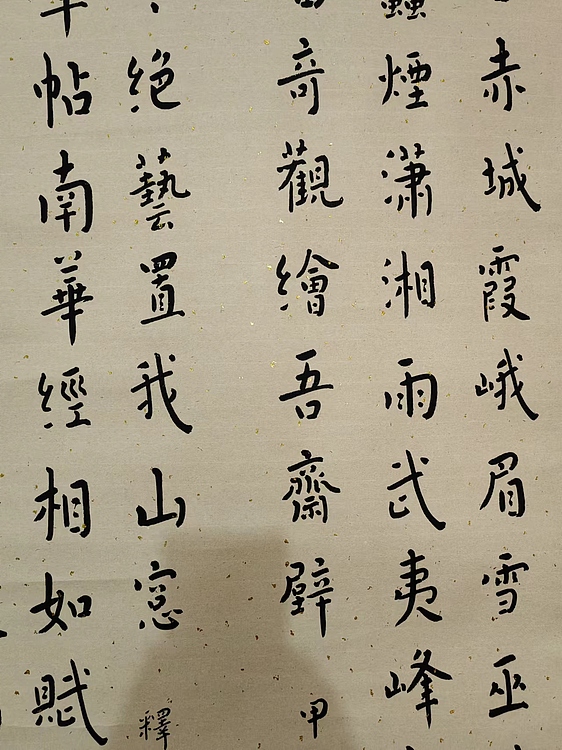 赤城霞峨眉雪巫
煙瀟湘雨武夷峰
竒觀繪吾齋壁 甲
帖南華經相如賦
絕藝置我山窓 釋